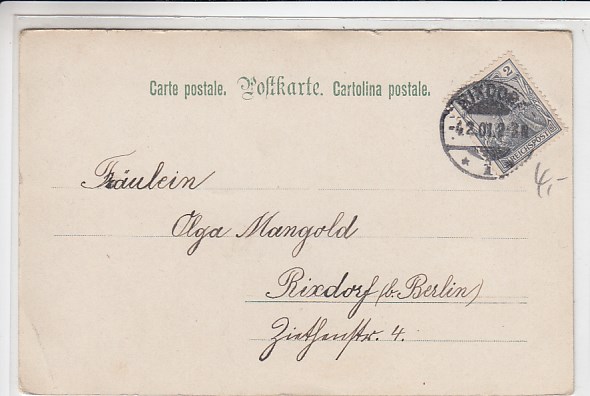 Carte postale. Postkarte. Cartolina postale.
2
REICHSPOST
RIXDORF
-4.2.01.2-3N
* 1 *
4,-
Fräulein
Olga Mangold
Rixdorf (b. Berlin)
Ziethenstr. 4.